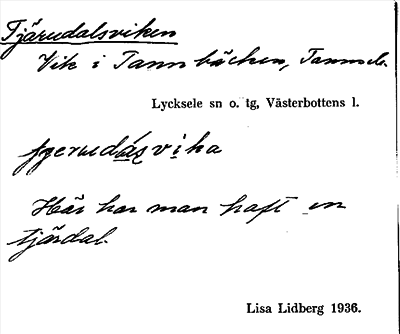 Tjärudalsviken
Vik i Tannbäcken, Tannsele.
Lycksele sn o. tg, Västerbottens l.
Här har man haft en
tjärdal.
Lisa Lidberg 1936.